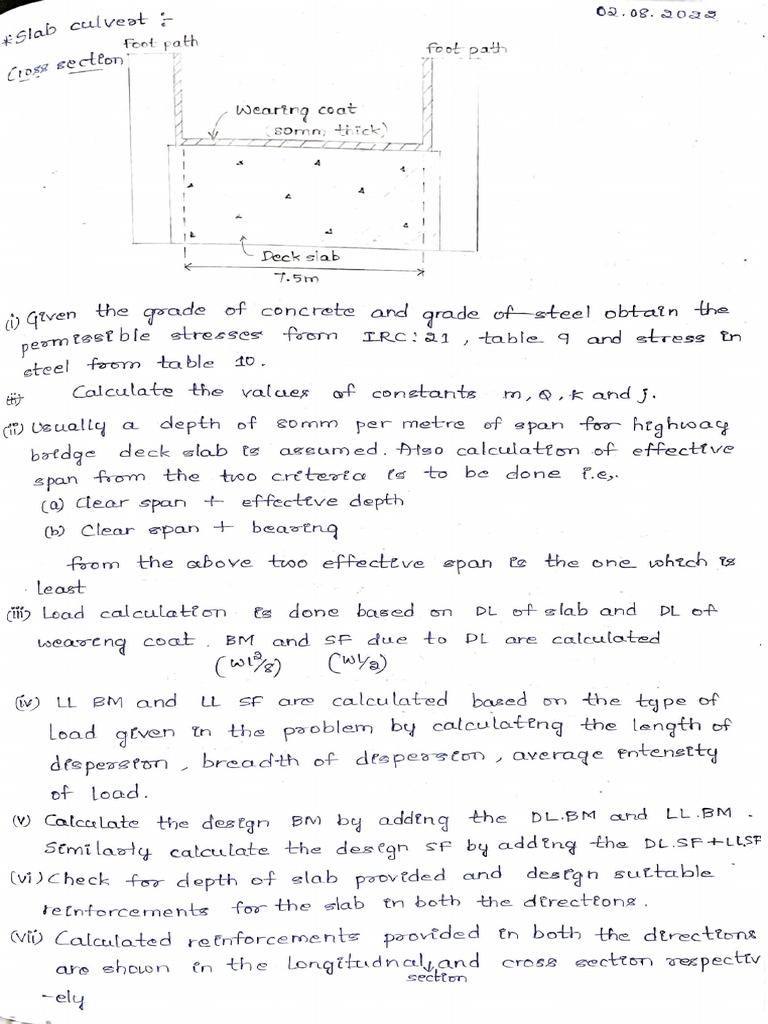 02.08.2022
*Slab culvert :-
Foot path
foot path
Cross section
Wearing coat
(80mm thick)
Deck slab
7.5m
(i) Given the grade of concrete and grade of steel obtain the
permissible stresses from IRC:21, table 9 and stress in
steel from table 10.
Calculate the values of constants m, Q, k and j.
(ii) Usually a depth of 80mm per metre of span for highway
bridge deck slab is assumed. Also calculation of effective
span from the two criteria is to be done i.e,.
(a) Clear span + effective depth
(b) Clear span + bearing
from the above two effective span is the one which is
least
(iii) Load calculation is done based on DL of slab and DL of
wearing coat. BM and SF due to DL are calculated
(wl²/8) (wl/2)
(iv) LL BM and LL SF are calculated based on the type of
load given in the problem by calculating the length of
dispersion, breadth of dispersion, average intensity
of load.
(v) Calculate the design BM by adding the DL.BM and LL.BM.
Similarly calculate the design SF by adding the DL.SF+LL.SF
(vi) Check for depth of slab provided and design suitable
reinforcements for the slab in both the directions.
(vii) Calculated reinforcements provided in both the directions
are shown in the longitudnal and cross section respectiv
section
-ely